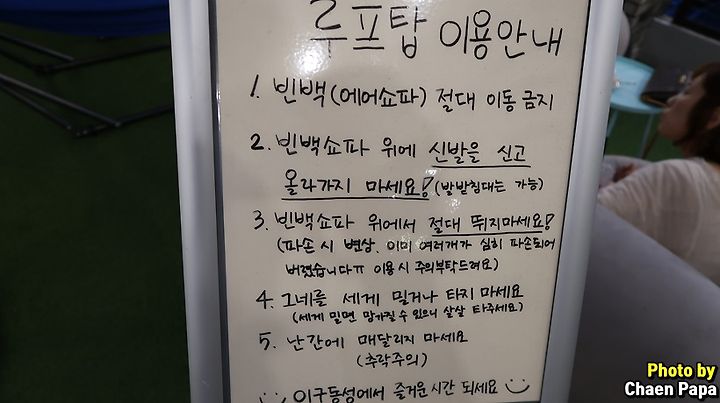 루프탑 이용안내
1. 빈백(에어쇼파) 절대 이동 금지
2. 빈백쇼파 위에 신발을 신고
올라가지 마세요! (발받침대는 가능)
3. 빈백쇼파 위에서 절대 뛰지마세요!
(파손 시 변상, 이미 여러개가 심히 파손되어
버렸습니다ㅠ 이용 시 주의부탁드려요)
4. 그네를 세게 밀거나 타지 마세요
(세게 밀면 망가질 수 있으니 살살 타주세요)
5. 난간에 매달리지 마세요
(추락주의)
이구동성에서 즐거운시간 되세요
Photo by
Chaen Papa